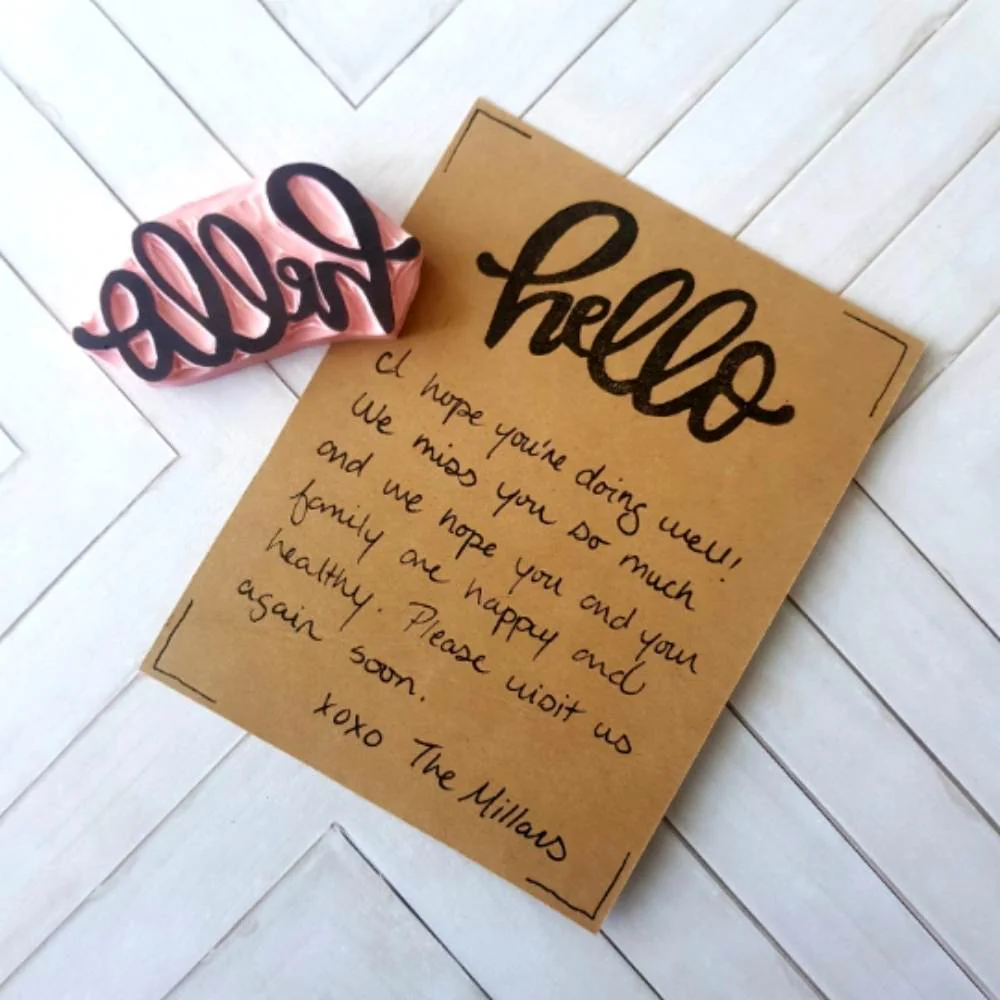 hello
hello
I hope you're doing well!
We miss you so much
and we hope you and your
family are happy and
healthy. Please visit us
again soon.
xoxo The Millars